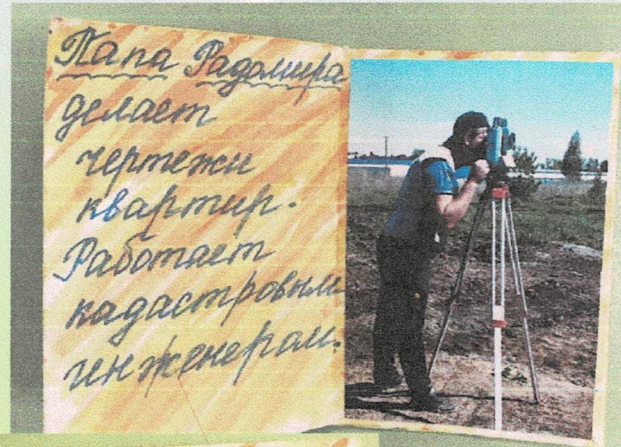 Папа Радомира
делает
чертежи
квартир.
Работает
кадастровым
инженером.